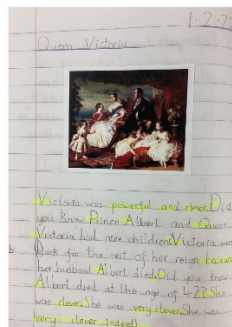 1-2-2
Queen Victoria
Victoria was powerful and clever. Did
you know Prince Albert and Queen
Victoria had nine children. Victoria wore
black for the rest of her reign because
her husband Albert died. Did you know
Albert died at the age of 42? She
was clever. She was very clever. She was
very clever indeed!